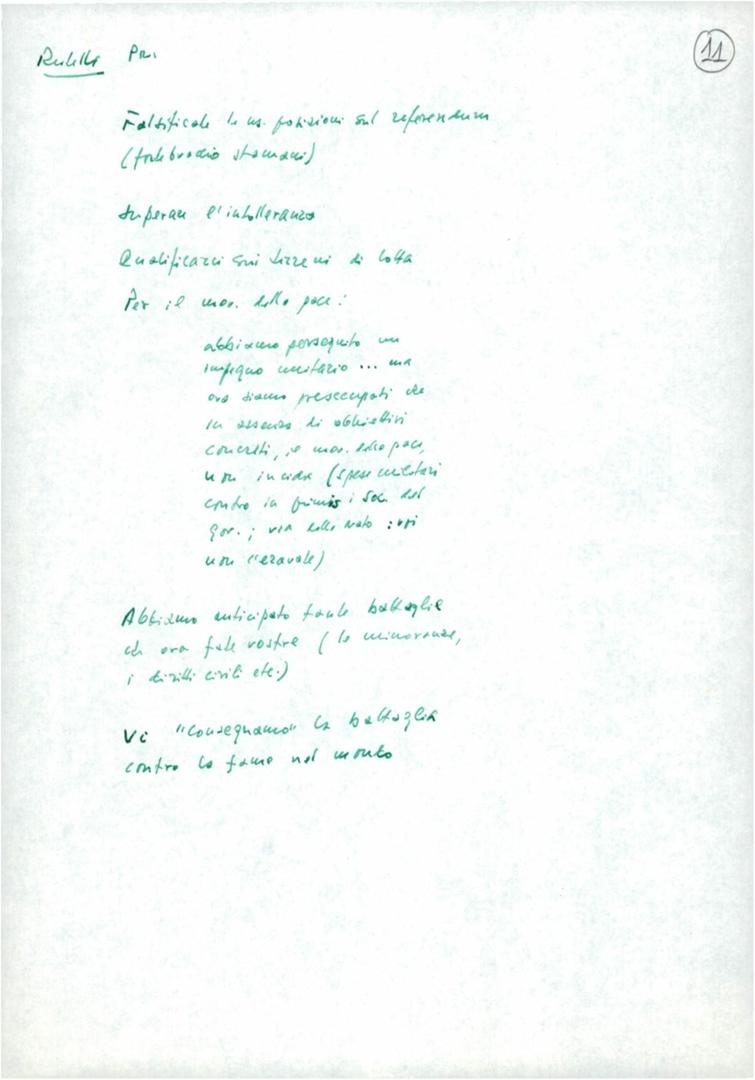 Rutelli PR. 11
Falsificate le ns. posizioni sul referendum
(fortebraccio stamani)
Superare l'intolleranza
Qualificarci sui terreni di lotta
Per il mov. della pace:
abbiamo perseguito un
impegno unitario ... ma
ora siamo preoccupati che
in assenza di obbiettivi
concreti, il mov. della pace,
non incida (spese militari
contro in primis i soc. del
gov.; via della Nato : voi
non c'eravate)
Abbiamo anticipato tante battaglie
che ora fate vostre (le minoranze,
i diritti civili etc.)
Vi "consegnamo" la battaglia
contro la fame nel mondo